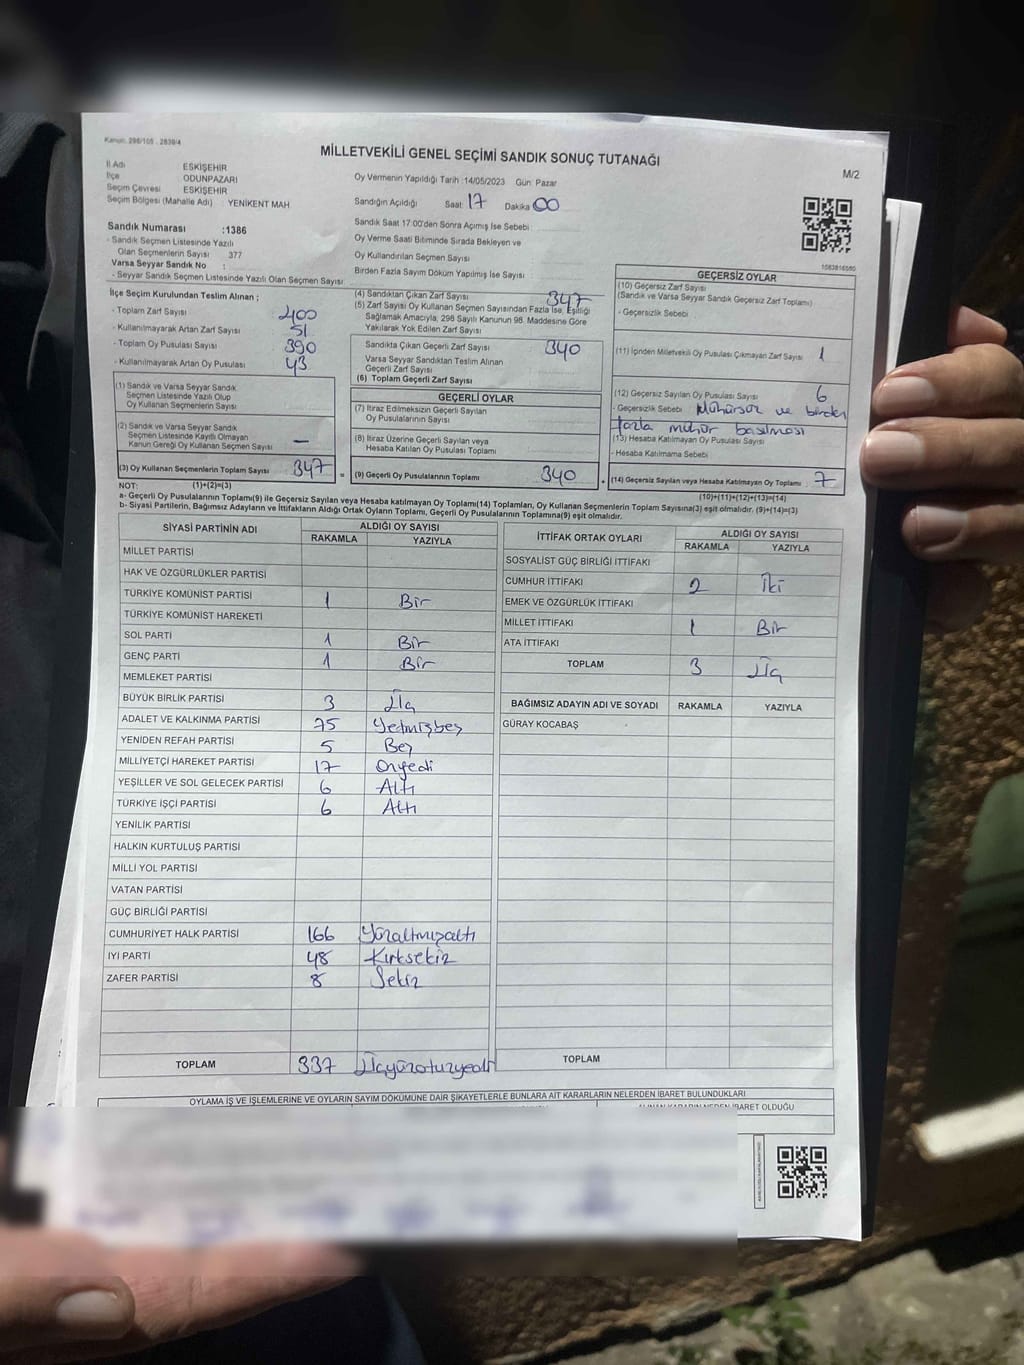 Kanun: 298/105 - 2839/4
MİLLETVEKİLİ GENEL SEÇİMİ SANDIK SONUÇ TUTANAĞI
M/2
İl Adı ESKİŞEHİR
İlçe ODUNPAZARI
Seçim Çevresi ESKİŞEHİR
Seçim Bölgesi (Mahalle Adı) YENİKENT MAH.
Oy Vermenin Yapıldığı Tarih :14/05/2023 Gün: Pazar
Sandığın Açıldığı Saat 17 Dakika 00
Sandık Numarası :1386
- Sandık Seçmen Listesinde Yazılı
Olan Seçmenlerin Sayısı 377
Varsa Seyyar Sandık No :
- Seyyar Sandık Seçmen Listesinde Yazılı Olan Seçmen Sayısı
Sandık Saat 17:00'den Sonra Açımış İse Sebebi
Oy Verme Saati Bitiminde Sırada Bekleyen ve
Oy Kullandırılan Seçmen Sayısı
Birden Fazla Sayım Döküm Yapılmış İse Sayısı
İlçe Seçim Kurulundan Teslim Alınan ;
- Toplam Zarf Sayısı 400
- Kullanılmayarak Artan Zarf Sayısı 51
- Toplam Oy Pusulası Sayısı 390
- Kullanılmayarak Artan Oy Pusulası 43
(1) Sandık ve Varsa Seyyar Sandık
Seçmen Listesinde Yazılı Olup
Oy Kullanan Seçmenlerin Sayısı
(2) Sandık ve Varsa Seyyar Sandık
Seçmen Listesinde Kayıtlı Olmayan
Kanun Gereği Oy Kullanan Seçmen Sayısı –
(3) Oy Kullanan Seçmenlerin Toplam Sayısı 347
(1)+(2)=(3)
(4) Sandıktan Çıkan Zarf Sayısı 347
(5) Zarf Sayısı Oy Kullanan Seçmen Sayısından Fazla İse, Eşitliği
Sağlamak Amacıyla, 298 Sayılı Kanunun 98. Maddesine Göre
Yakılarak Yok Edilen Zarf Sayısı
Sandıkta Çıkan Geçerli Zarf Sayısı 340
Varsa Seyyar Sandıktan Teslim Alınan
Geçerli Zarf Sayısı
(6) Toplam Geçerli Zarf Sayısı
GEÇERLİ OYLAR
(7) İtiraz Edilmeksizin Geçerli Sayılan
Oy Pusulalarının Sayısı
(8) İtiraz Üzerine Geçerli Sayılan veya
Hesaba Katılan Oy Pusulası Toplamı
= (9) Geçerli Oy Pusulalarının Toplamı 340
1583816560
GEÇERSİZ OYLAR
(10) Geçersiz Zarf Sayısı
(Sandık ve Varsa Seyyar Sandık Geçersiz Zarf Toplamı)
- Geçersizlik Sebebi
(11) İçinden Milletvekili Oy Pusulası Çıkmayan Zarf Sayısı 1
(12) Geçersiz Sayılan Oy Pusulası Sayısı 6
- Geçersizlik Sebebi Mühürsüz ve birden
fazla mühür basılması
(13) Hesaba Katılmayan Oy Pusulası Sayısı
- Hesaba Katılmama Sebebi
+ (14) Geçersiz Sayılan veya Hesaba Katılmayan Oy Toplamı 7
(10)+(11)+(12)+(13)=(14)
NOT:
a- Geçerli Oy Pusulalarının Toplamı(9) ile Geçersiz Sayılan veya Hesaba katılmayan Oy Toplamı(14) Toplamları, Oy Kullanan Seçmenlerin Toplam Sayısına(3) eşit olmalıdır. (9)+(14)=(3)
b- Siyasi Partilerin, Bağımsız Adayların ve İttifakların Aldığı Ortak Oyların Toplamı, Geçerli Oy Pusulalarının Toplamına(9) eşit olmalıdır.
SİYASİ PARTİNİN ADI ALDIĞI OY SAYISI
RAKAMLA YAZIYLA
MİLLET PARTİSİ
HAK VE ÖZGÜRLÜKLER PARTİSİ
TÜRKİYE KOMÜNİST PARTİSİ 1 Bir
TÜRKİYE KOMÜNİST HAREKETİ
SOL PARTİ 1 Bir
GENÇ PARTİ 1 Bir
MEMLEKET PARTİSİ
BÜYÜK BİRLİK PARTİSİ 3 Üç
ADALET VE KALKINMA PARTİSİ 75 Yetmişbeş
YENİDEN REFAH PARTİSİ 5 Beş
MİLLİYETÇİ HAREKET PARTİSİ 17 Onyedi
YEŞİLLER VE SOL GELECEK PARTİSİ 6 Altı
TÜRKİYE İŞÇİ PARTİSİ 6 Altı
YENİLİK PARTİSİ
HALKIN KURTULUŞ PARTİSİ
MİLLİ YOL PARTİSİ
VATAN PARTİSİ
GÜÇ BİRLİĞİ PARTİSİ
CUMHURİYET HALK PARTİSİ 166 Yüzaltmışaltı
İYİ PARTİ 48 Kırksekiz
ZAFER PARTİSİ 8 Sekiz
TOPLAM 337 Üçyüzotuzyedi
İTTİFAK ORTAK OYLARI ALDIĞI OY SAYISI
RAKAMLA YAZIYLA
SOSYALİST GÜÇ BİRLİĞİ İTTİFAKI
CUMHUR İTTİFAKI 2 İki
EMEK VE ÖZGÜRLÜK İTTİFAKI
MİLLET İTTİFAKI 1 Bir
ATA İTTİFAKI
TOPLAM 3 Üç
BAĞIMSIZ ADAYIN ADI VE SOYADI RAKAMLA YAZIYLA
GÜRAY KOCABAŞ
TOPLAM
OYLAMA İŞ VE İŞLEMLERİNE VE OYLARIN SAYIM DÖKÜMÜNE DAİR ŞİKAYETLERLE BUNLARA AİT KARARLARIN NELERDEN İBARET BULUNDUKLARI
ALINAN KARARIN NEDEN İBARET OLDUĞU